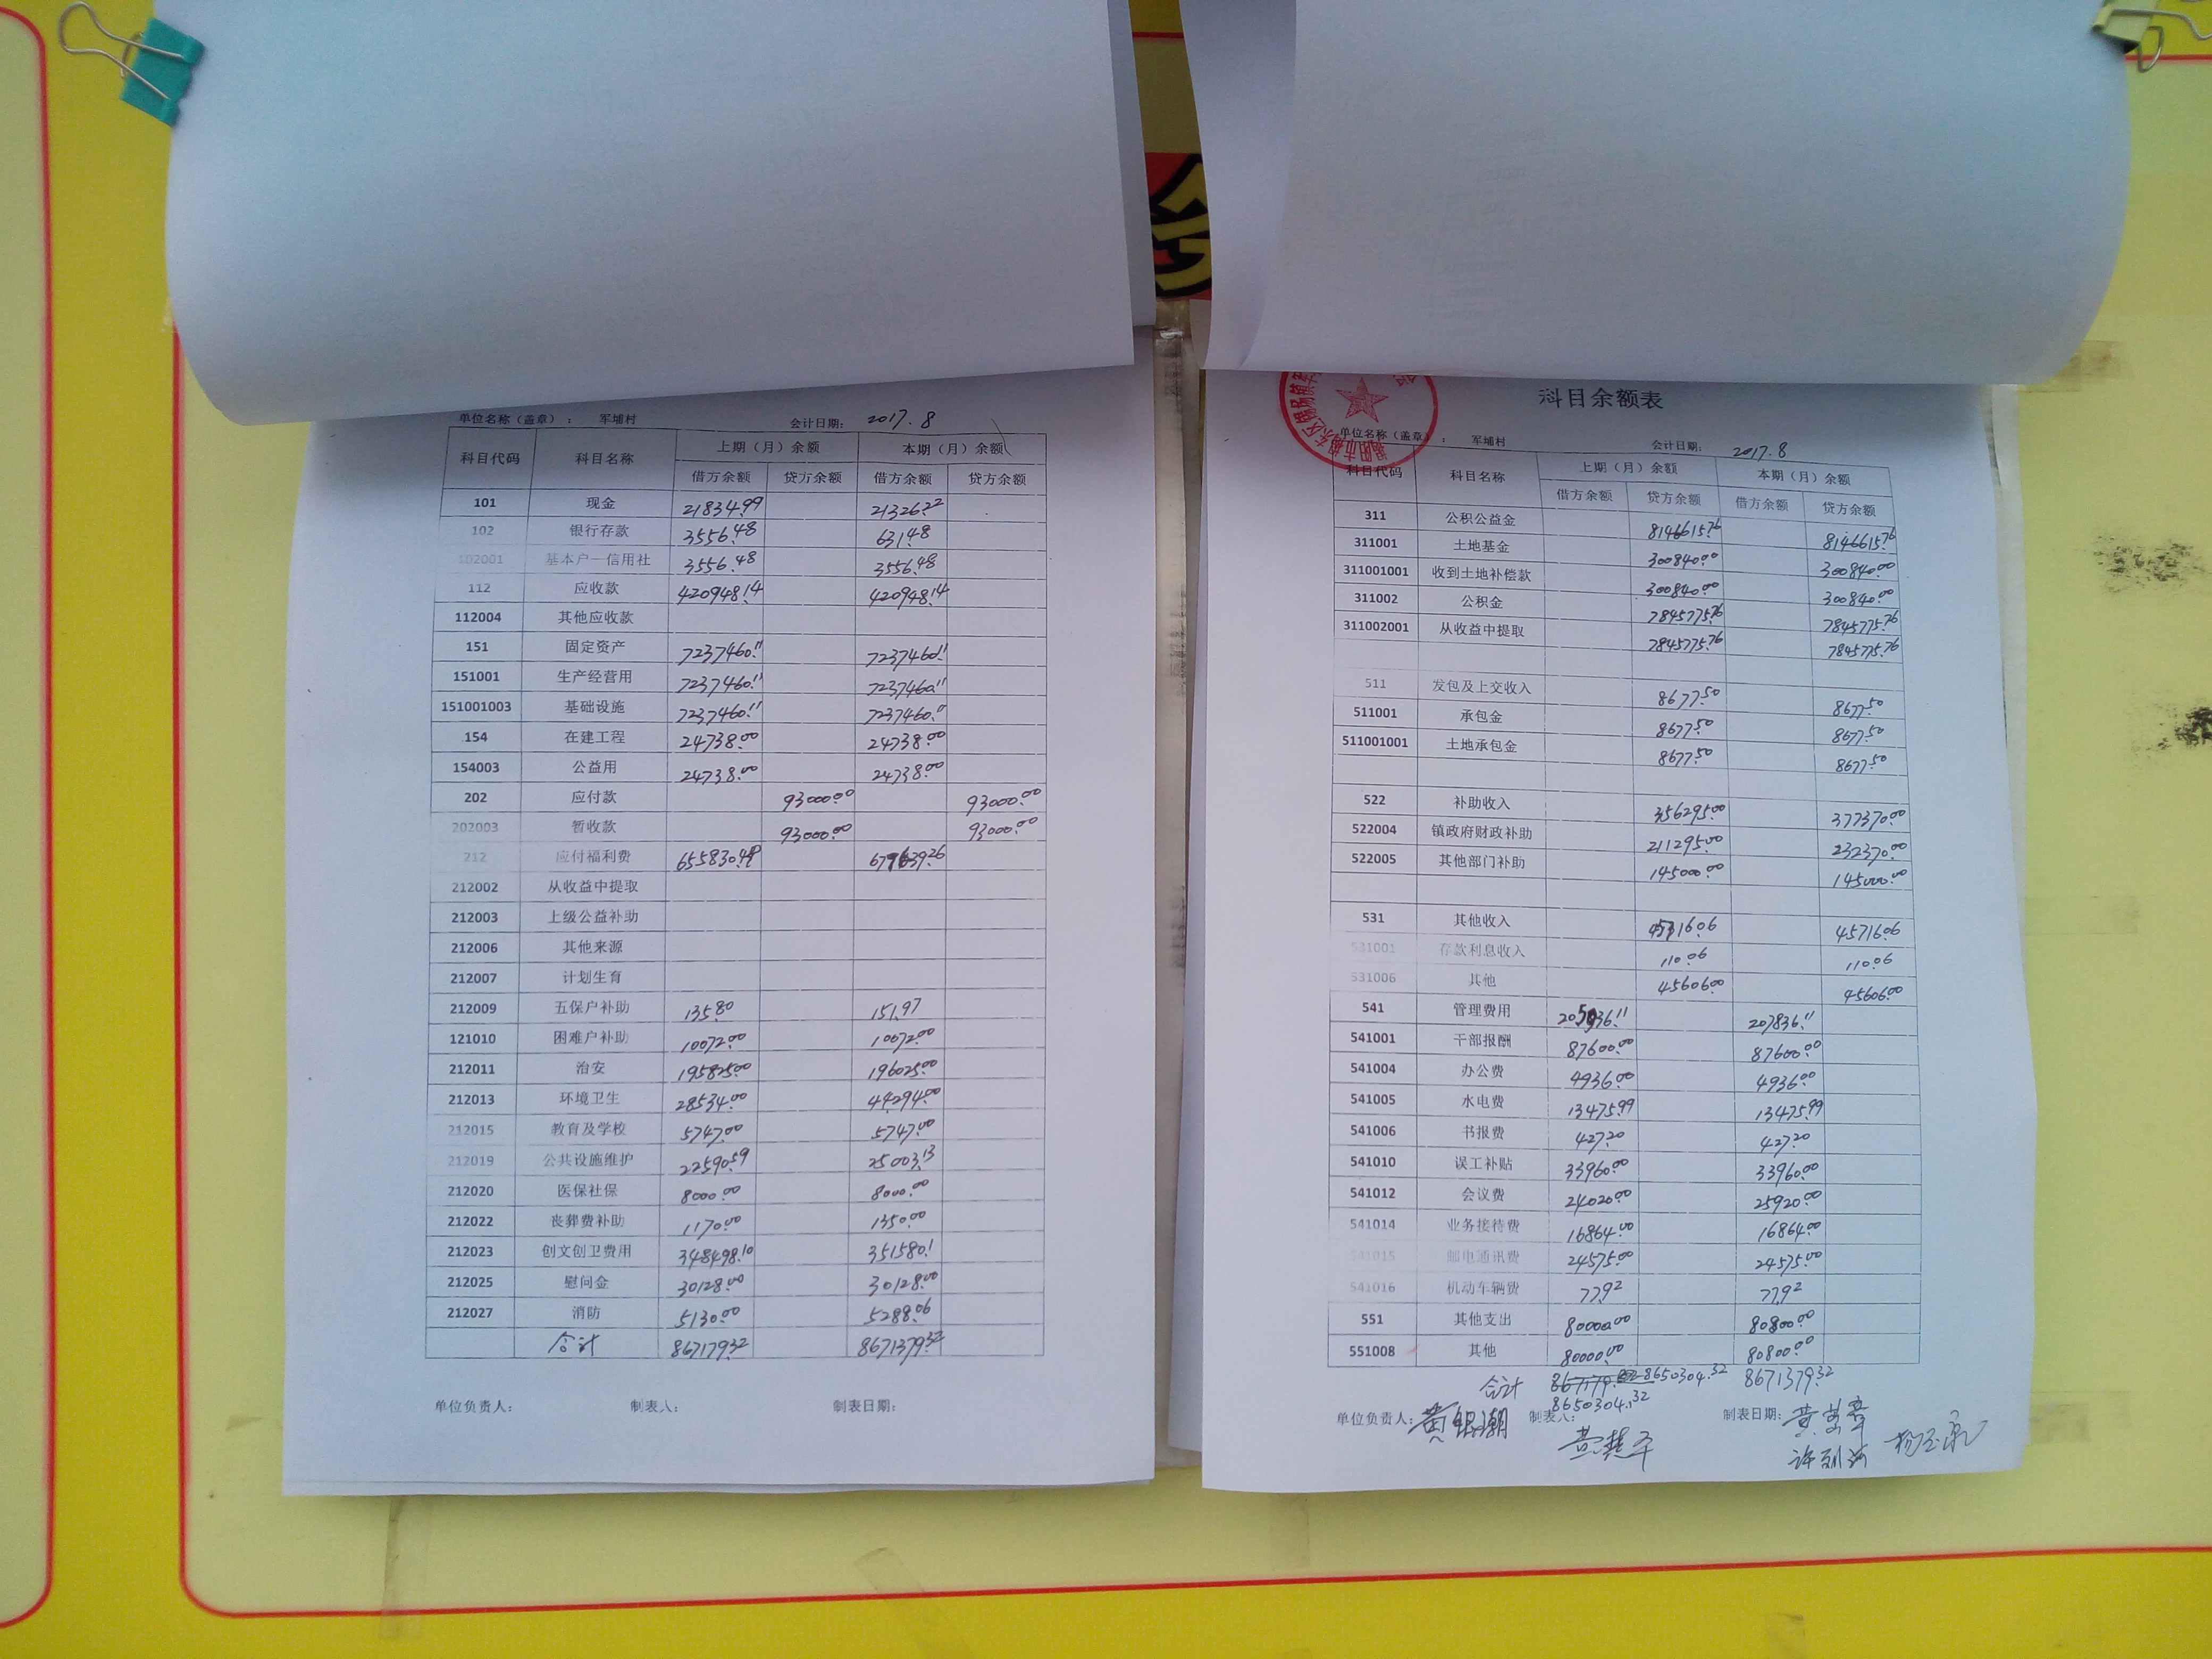 单位名称（盖章）： 军埔村 会计日期： 2017.8
科目代码 科目名称 上期（月）余额 本期（月）余额
借方余额 贷方余额 借方余额 贷方余额
101 现金 21834.99 21326.22
102 银行存款 3556.48 631.48
102001 基本户一信用社 3556.48 3556.48
112 应收款 420948.14 420948.14
112004 其他应收款
151 固定资产 7237460.11 7237460.11
151001 生产经营用 7237460.11 7237460.11
151001003 基础设施 7237460.11 7237460.11
154 在建工程 24738.00 24738.00
154003 公益用 24738.00 24738.00
202 应付款 93000.00 93000.00
202003 暂收款 93000.00 93000.00
212 应付福利费 655830.49
212002 从收益中提取
212003 上级公益补助
212006 其他来源
212007 计划生育
212009 五保户补助 135.80 151.97
121010 困难户补助 10072.00 10072.00
212011 治安 195825.00 196025.00
212013 环境卫生 28534.00 44294.00
212015 教育及学校 5747.00 5747.00
212019 公共设施维护 22590.59 25003.13
212020 医保社保 8000.00 8000.00
212022 丧葬费补助 1170.00 1350.00
212023 创文创卫费用 348498.10 351580.1
212025 慰问金 30128.00 30128.00
212027 消防 5130.00 5288.06
合计 867179.32 8671379.32
单位负责人： 制表人： 制表日期：
科目余额表
单位名称（盖章）： 军埔村 会计日期： 2017.8
科目代码 科目名称 上期（月）余额 本期（月）余额
借方余额 贷方余额 借方余额 贷方余额
311 公积公益金 8146615.76 8146615.76
311001 土地基金 300840.00 300840.00
311001001 收到土地补偿款 300840.00 300840.00
311002 公积金 7845775.76 7845775.76
311002001 从收益中提取 7845775.76 7845775.76
511 发包及上交收入 8677.50 8677.50
511001 承包金 8677.50 8677.50
511001001 土地承包金 8677.50 8677.50
522 补助收入 356295.00 377370.00
522004 镇政府财政补助 211295.00 232370.00
522005 其他部门补助 145000.00 145000.00
531 其他收入 45716.06
531001 存款利息收入 110.06 110.06
531006 其他 45606.00 45606.00
541 管理费用 207836.11
541001 干部报酬 87600.00 87600.00
541004 办公费 4936.00 4936.00
541005 水电费 13475.99 13475.99
541006 书报费 427.20 427.20
541010 误工补贴 33960.00 33960.00
541012 会议费 24020.00 25920.00
541014 业务接待费 16864.00 16864.00
541015 邮电通讯费 24575.00 24575.00
541016 机动车辆费 77.92 77.92
551 其他支出 80000.00 80800.00
551008 其他 80000.00 80800.00
合计 8650304.32 8671379.32
8650304.32
单位负责人： 黄银潮 制表人： 制表日期：